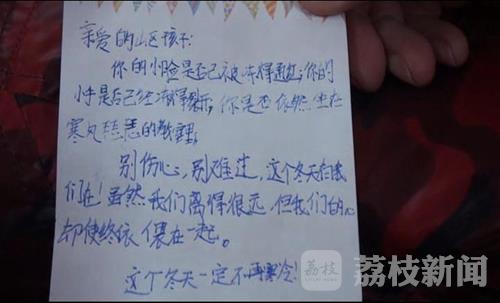 亲爱的山区孩子:
你的小脸是否已被冻得通红,你的
小手是否已经冻得
你是否依然坐在
寒风
的教室里。
别伤心,别难过,这个冬天有我
们在!虽然我们离得很远,但我们的心
却使终依偎在一起。
这个冬天一定不再寒冷!
荔枝
荔枝新闻